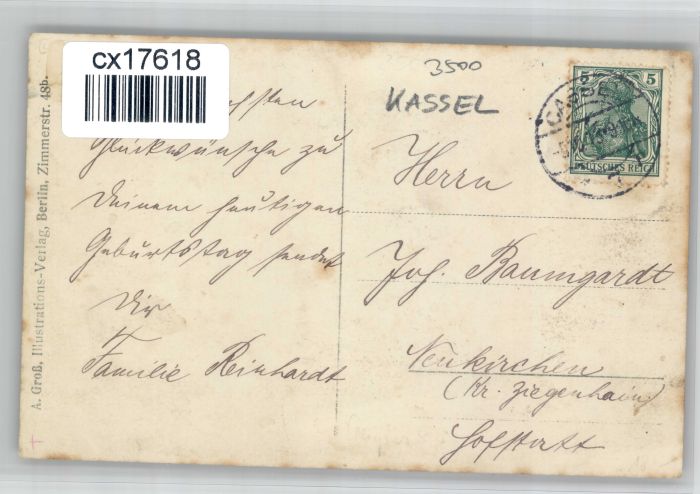 cx17618
3500
KASSEL
5 5
DEUTSCHES REICH
CASSEL
7
Glückwünsche zu
Deinem heutigen
Geburtstag sendet
Dir
Familie Reinhardt
Herrn
Joh. Baumgardt
Neukirchen
(Kr. Ziegenhain)
Hofstatt
A. Groß, Illustrations-Verlag, Berlin, Zimmerstr. 48b.